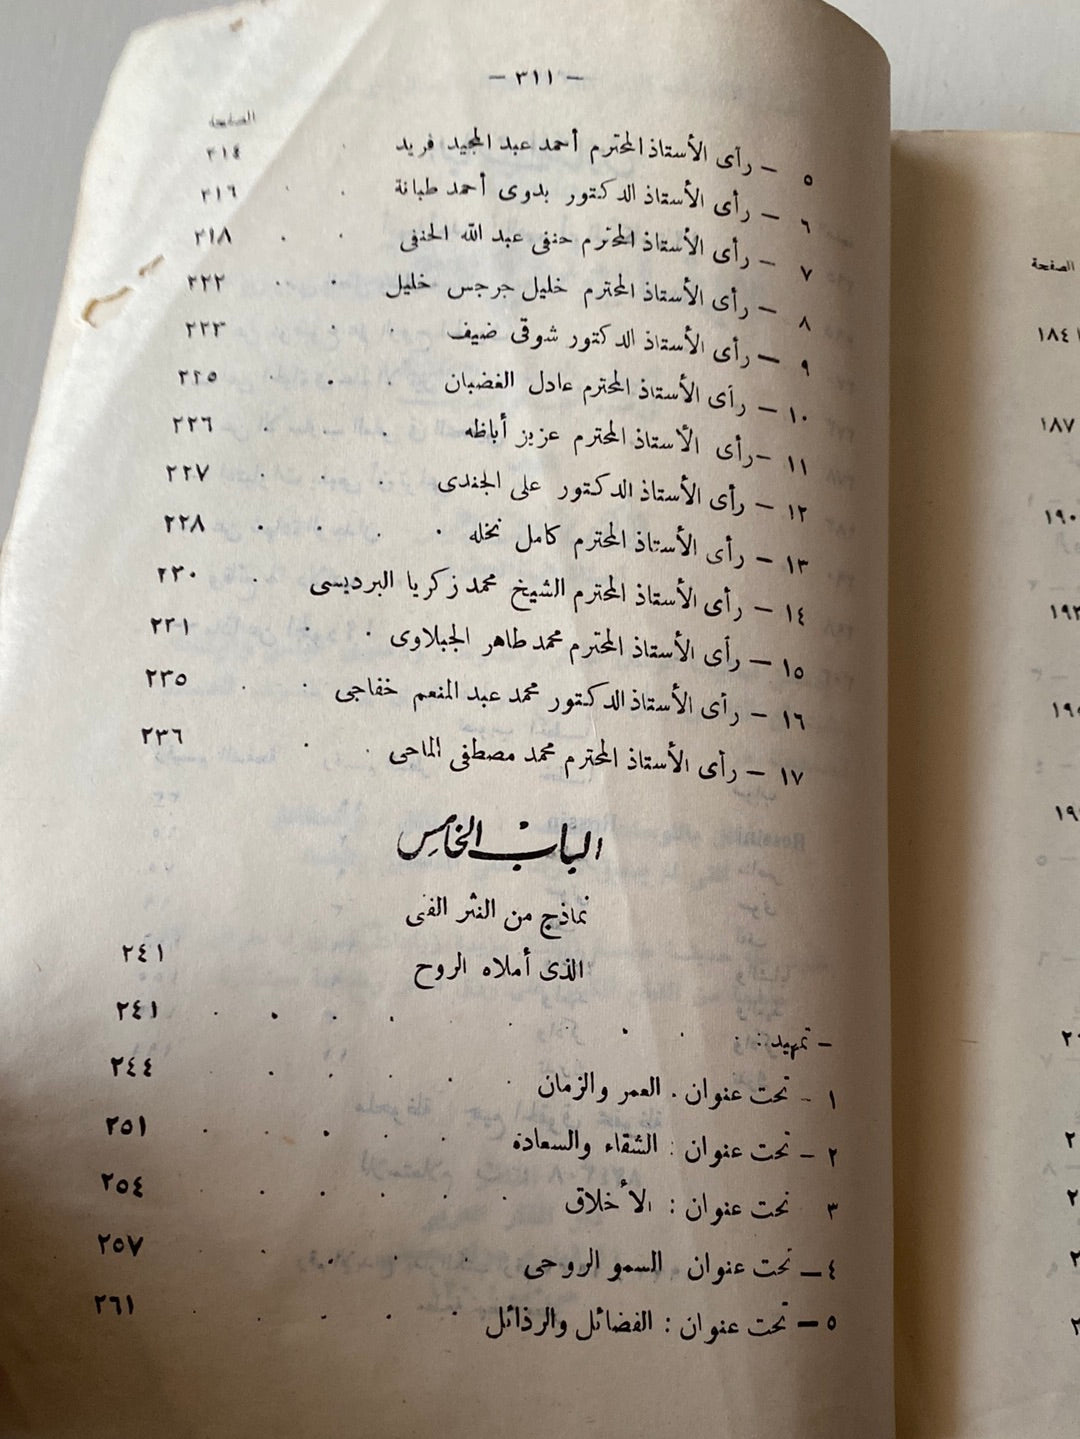 — ٣١١ —
الصفحة
٥ — رأى الأستاذ المحترم أحمد عبد المجيد فريد ٢١٤
٦ — رأى الأستاذ الدكتور بدوى أحمد طبانة ٢١٦
٧ — رأى الأستاذ المحترم حنفى عبد الله الحنفى ٢١٨
٨ — رأى الأستاذ المحترم خليل جرجس خليل ٢٢٢
٩ — رأى الأستاذ الدكتور شوقى ضيف ٢٢٣
١٠ — رأى الأستاذ المحترم عادل الغضبان ٢٢٥
١١ — رأى الأستاذ المحترم عزيز أباظه ٢٢٦
١٢ — رأى الأستاذ الدكتور على الجندى ٢٢٧
١٣ — رأى الأستاذ المحترم كامل نخله ٢٢٨
١٤ — رأى الأستاذ المحترم الشيخ محمد زكريا البرديسى ٢٣٠
١٥ — رأى الأستاذ المحترم محمد طاهر الجبلاوى ٢٣١
١٦ — رأى الأستاذ الدكتور محمد عبد المنعم خفاجى ٢٣٥
١٧ — رأى الأستاذ المحترم محمد مصطفى الماحى ٢٣٦
الباب الخامس
نماذج من النثر الفنى
الذى أملاه الروح ٢٤١
— تمهيد : ٢٤١
١ - تحت عنوان . العمر والزمان ٢٤٤
٢ — تحت عنوان : الشقاء والسعادة ٢٥١
٣ تحت عنوان : الأخلاق ٢٥٤
٤ — تحت عنوان السمو الروحى ٢٥٧
٥ — تحت عنوان : الفضائل والرذائل ٢٦١
الصفحة
١٨٤
١٨٧